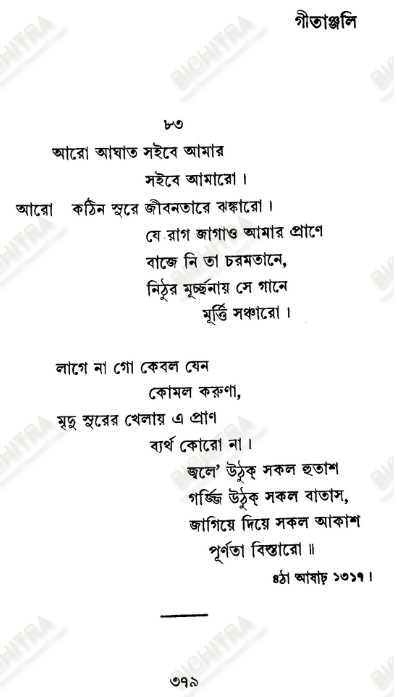 গীতাঞ্জলি
৮৩
আরো আঘাত সইবে আমার
সইবে আমারো।
আরো কঠিন সুরে জীবনতারে ঝঙ্কারো।
যে রাগ জাগাও আমার প্রাণে
বাজে নি তা চরমতানে,
নিঠুর মূর্চ্ছনায় সে গানে
মূর্ত্তি সঞ্চারো।
লাগে না গো কেবল যেন
কোমল করুণা,
মৃদু সুরের খেলায় এ প্রাণ
ব্যর্থ কোরো না।
জ্বলে' উঠুক্ সকল হুতাশ
গর্জ্জি উঠুক্ সকল বাতাস,
জাগিয়ে দিয়ে সকল আকাশ
পূর্ণতা বিস্তারো॥
৪ঠা আষাঢ় ১৩১৭।
৩৭৯
BICHITRA